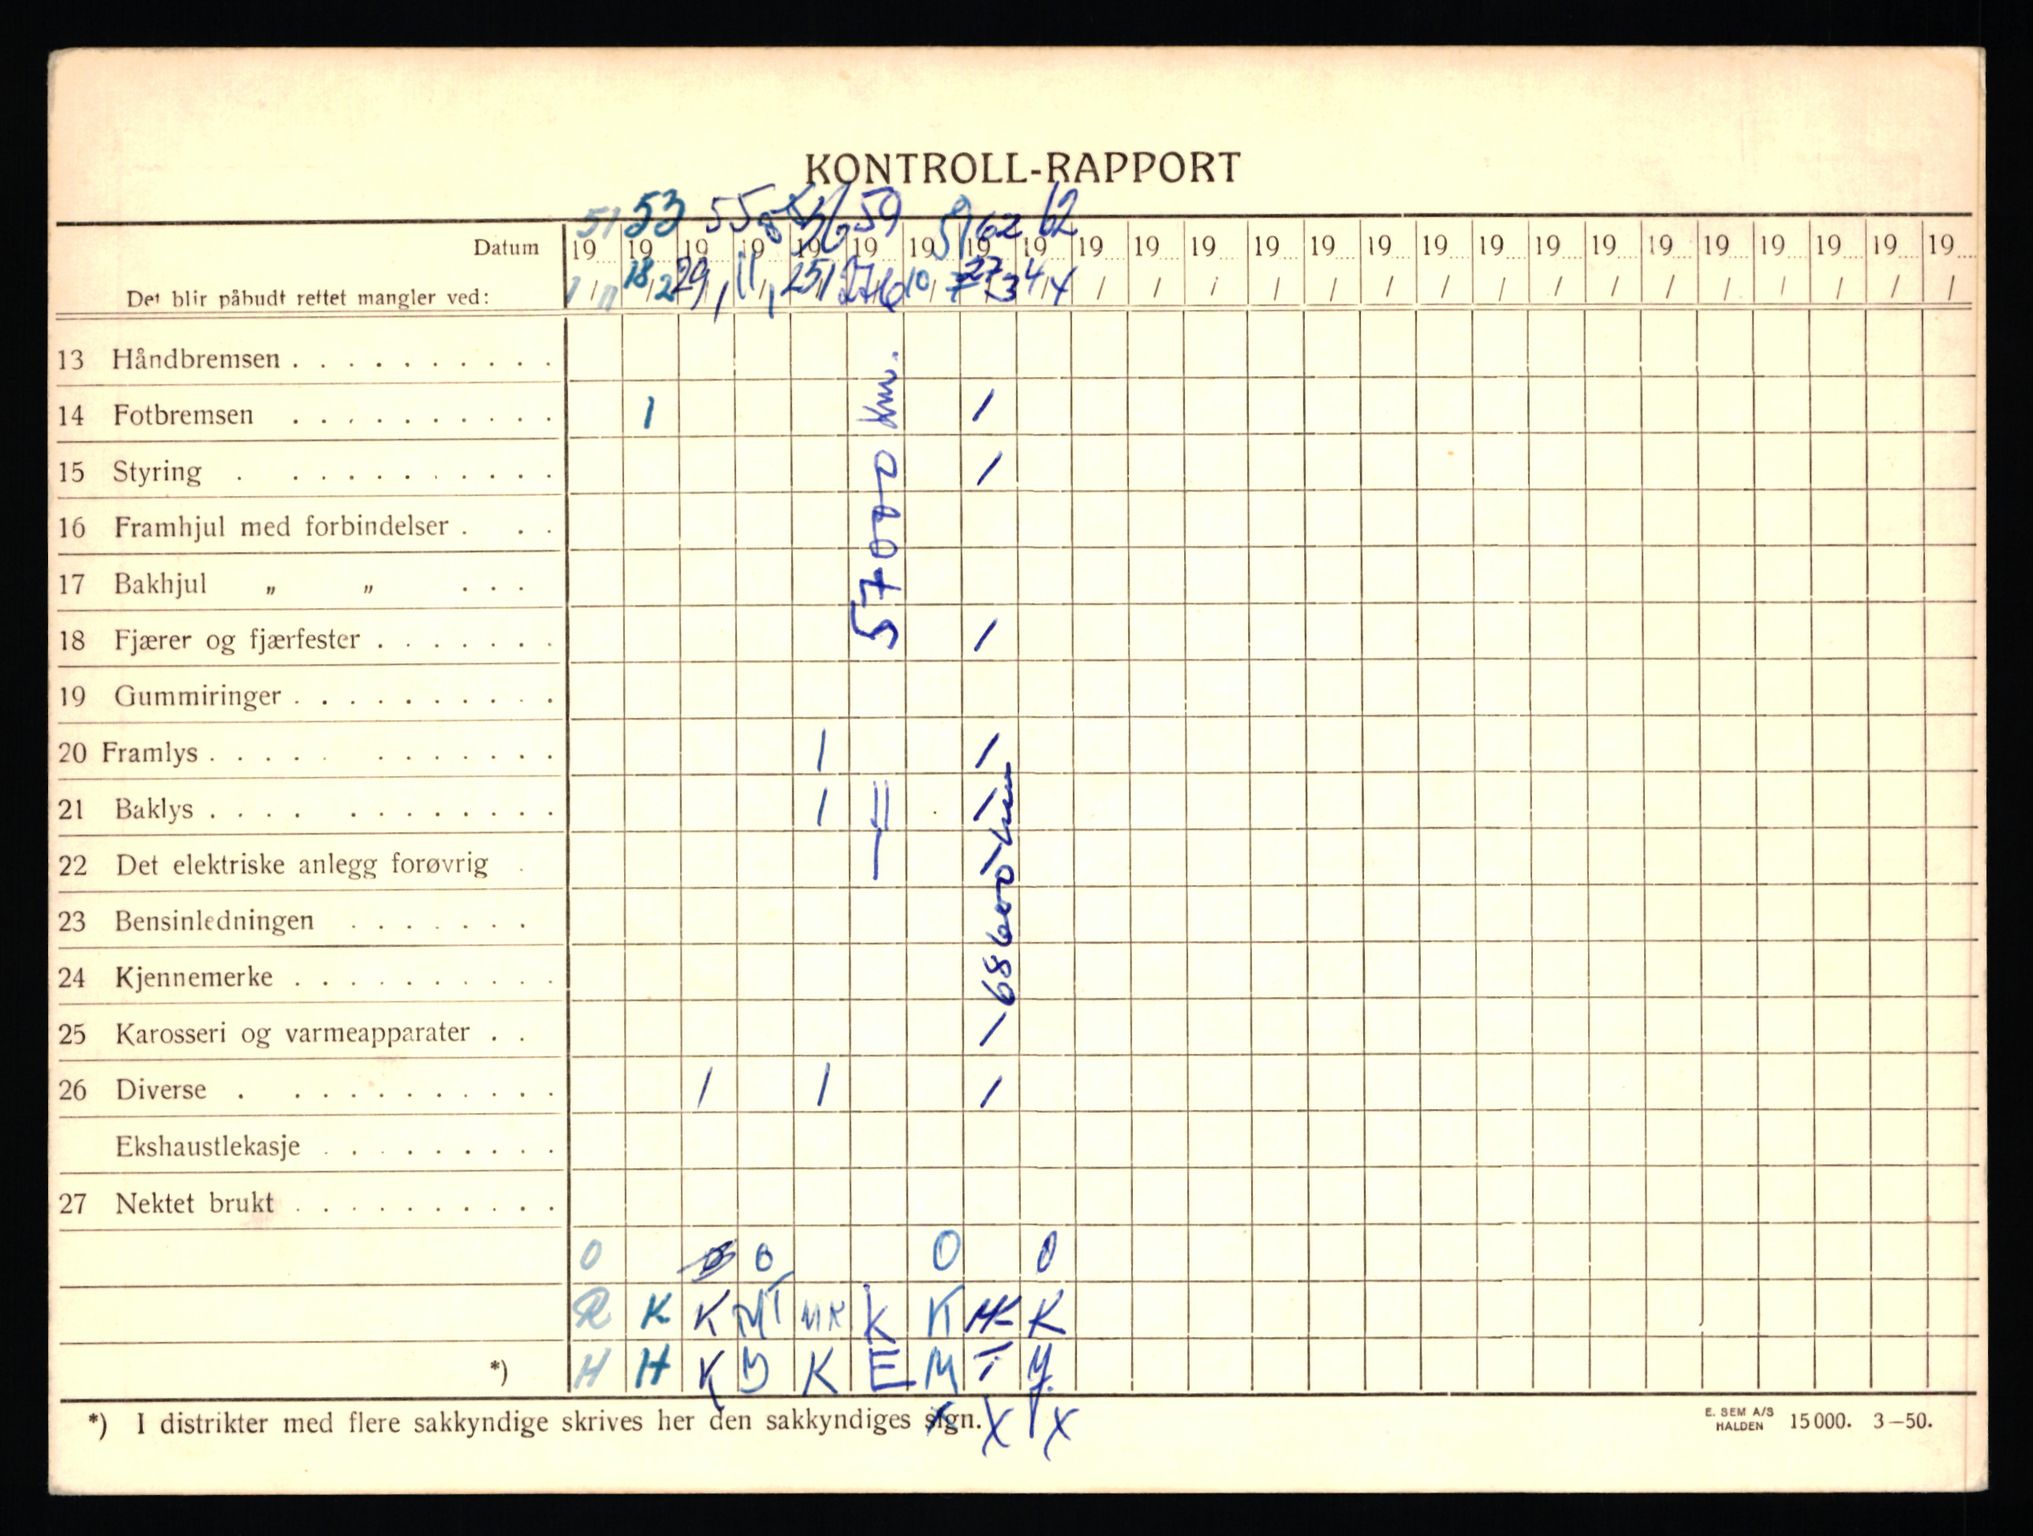 KONTROLL-RAPPORT
51 53 55 56 59 59 62 62
Datum 19 19 19 19 19 19 19 19 19 19 19 19 19 19 19 19 19 19 19 19 19 19 19 19 19
Det blir påbudt rettet mangler ved: 18/2 29/1 11/1 25/1 27/6 10/7 27/3 4/4 / / / / / / / / / / / / / / / /
13 Håndbremsen . . . . . . . . . .
14 Fotbremsen . . . . . . . . . . 1 1
15 Styring . . . . . . . . . . . 1
16 Framhjul med forbindelser . . .
17 Bakhjul „ „ . . .
18 Fjærer og fjærfester . . . . . . . 1
19 Gummiringer . . . . . . . . . .
20 Framlys . . . . . . . . . . . 1 1
21 Baklys . . . . . . . . . . . . 1 1
22 Det elektriske anlegg forøvrig .
23 Bensinledningen . . . . . . .
24 Kjennemerke . . . . . . . . . .
25 Karosseri og varmeapparater . . 1
26 Diverse . . . . . . . . . . . 1 1 1
Ekshaustlekasje . . . . . . . . .
27 Nektet brukt . . . . . . . . . .
57000 Km.
68600 km
0 0 0 0
R K K MT MK K K MK K
*) H H K D K E M T
*) I distrikter med flere sakkyndige skrives her den sakkyndiges sign. x x x
E. SEM A/S
HALDEN 15000. 3–50.